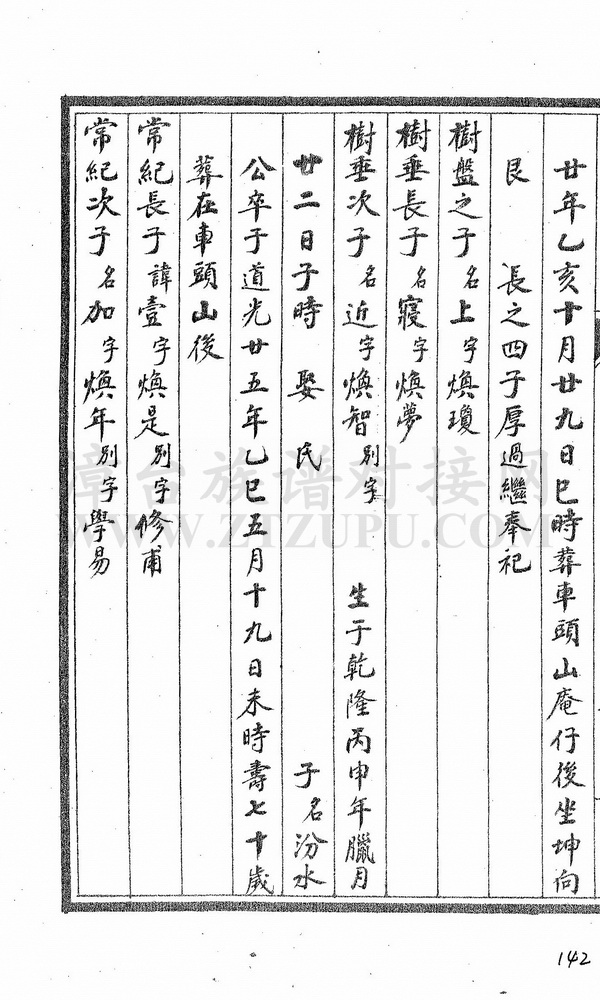 廿年乙亥十月廿九日巳時葬車頭山庵仔後坐坤向
艮 長之四子厚過繼奉祀
樹盤之子名上字煥瓊
樹垂長子名寢字煥夢
樹垂次子名近字煥智別字 生于乾隆丙申年臘月
廿二日子時 娶 氏 子名汾水
公卒于道光廿五年乙巳五月十九日未時壽七十歲
葬在車頭山後
常紀長子諱壹字煥是別字修甫
常紀次子名加字煥年別字學易
章台族谱对接网
WWW.ZTZUPU.COM
142